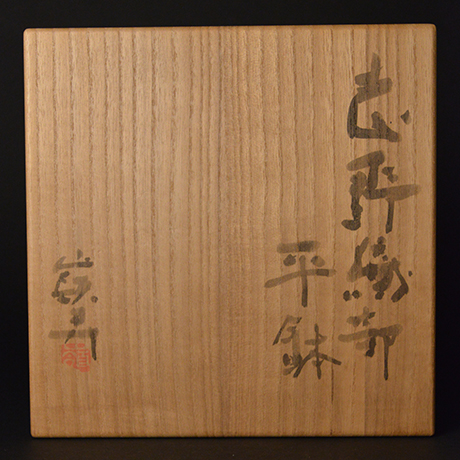 志野織部
平鉢